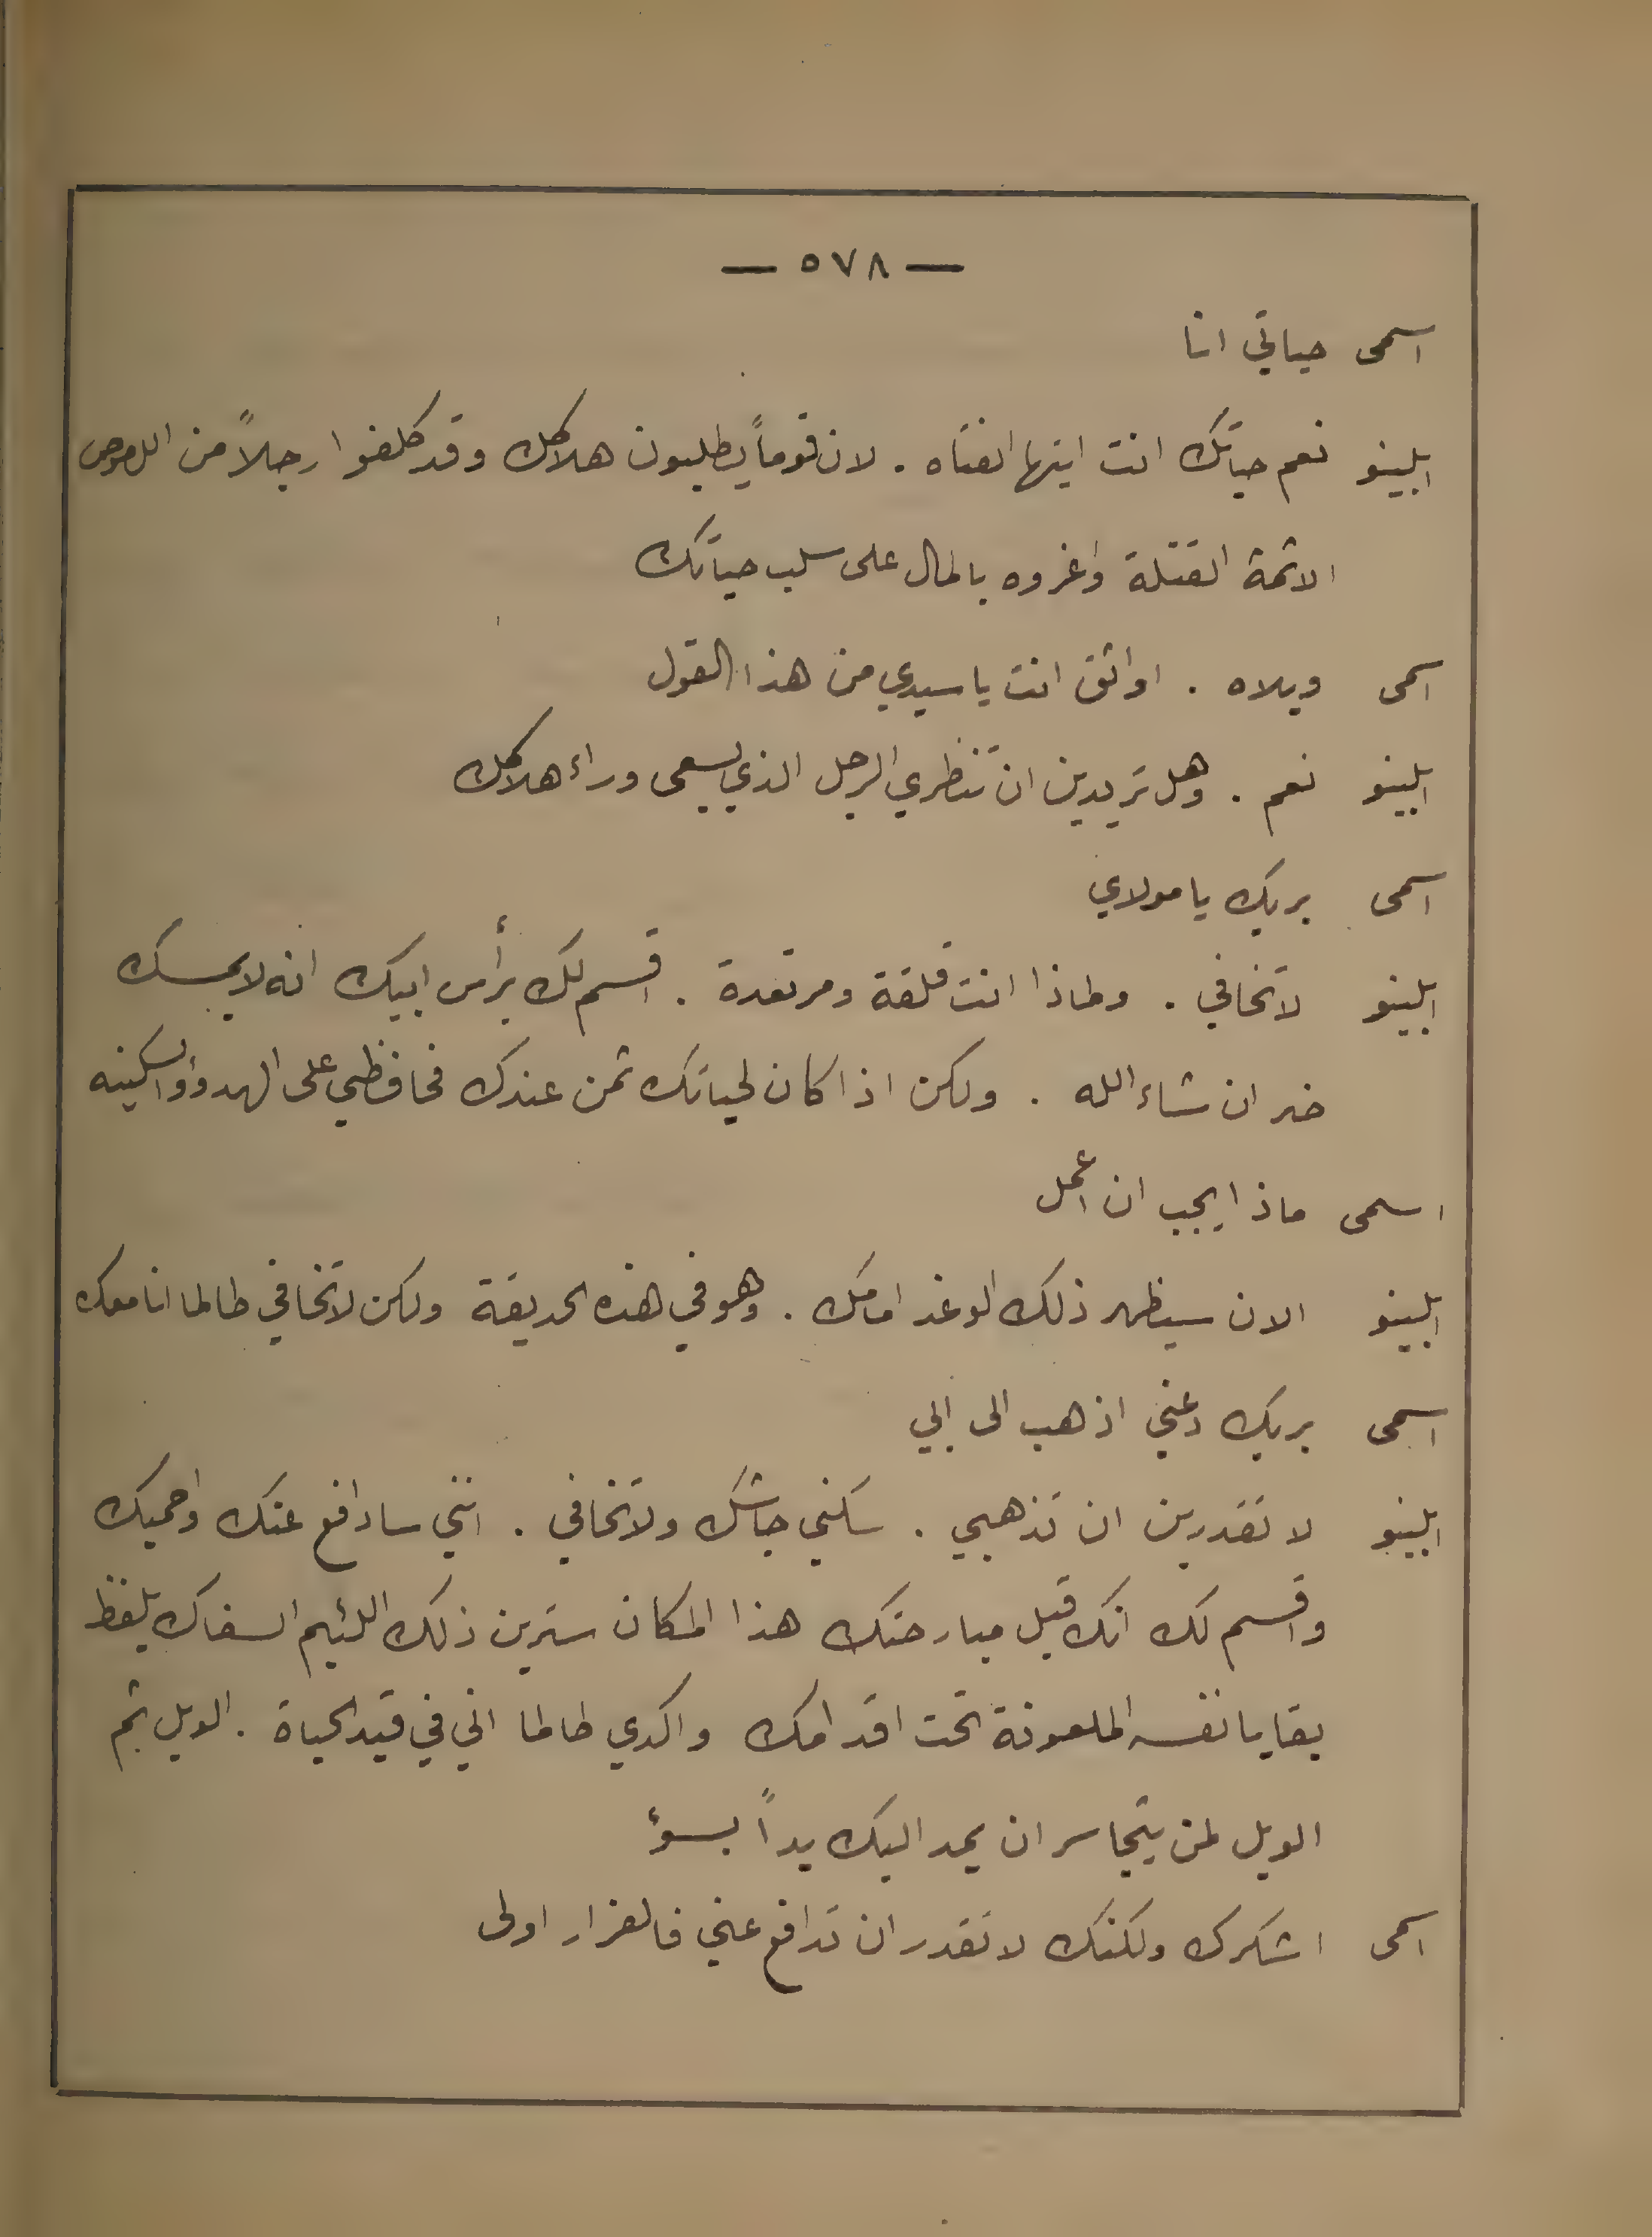 — ٥٧٨ —
اسمى حياتي انا
ابلينو نعم حياتك انت ايتها الفتاه . لان قوماً يطلبون هلاكك وقد كلفوا رجلاً من اللصوص
الاثمة القتلة واغروه بالمال على سلب حياتك
اسمى ويلاه . اواثق انت يا سيدي من هذا القول
ابلينو نعم . وهل تريدين ان تنظري الرجل الذي يسعى وراء هلاكك
اسمى بربك يا مولاي
ابلينو لا تخافي . ولماذا انت قلقة ومرتعدة . اقسم لك برأس ابيك انه لا يمسك
ضر ان شاء الله . ولكن اذا كان لحياتك ثمن عندك فحافظي على الهدوء والسكينه
اسمى ماذا يجب ان اعمل
ابلينو الان سيظهر ذلك الوغد امامك . وهو في هذه الحديقة ولكن لا تخافي طالما انا معك
اسمى بربك دعني اذهب الى ابي
ابلينو لا تقدرين ان تذهبي . سكني جاشك ولا تخافي . انني سادافع عنك واحميك
واقسم لك انك قبل مبارحتك هذا المكان سترين ذلك اللئيم السفاك يلفظ
بقايا نفسه الملعونة تحت اقدامك واكدي طالما اني في قيد الحياة . الويل ثم
الويل لمن يتجاسر ان يمد اليك يداً بسوء
اسمى اشكرك ولكنك لا تقدر ان تدافع عني فالفرار اولى